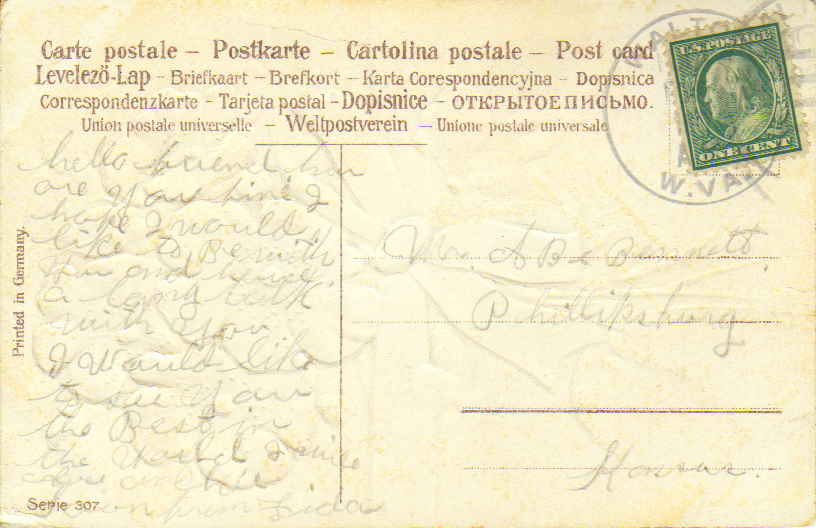 Carte postale – Postkarte – Cartolina postale – Post card
Levelező-Lap – Briefkaart – Brefkort – Karta Corespondencyjna – Dopisnica
Correspondenzkarte – Tarjeta postal – Dopisnice – ОТКРЫТОЕПИСЬМО.
Union postale universelle – Weltpostverein – Unione postale universale
U.S. POSTAGE
ONE CENT
W.VA
hello friend how
are you fine I
hope I would
like to Be with
you and have
a long talk
with you
I would like
to see you
the Best in
the World I will
from Lida
Mr. A B Bennett
Phillipsburg
Kansas.
Printed in Germany.
Serie 307